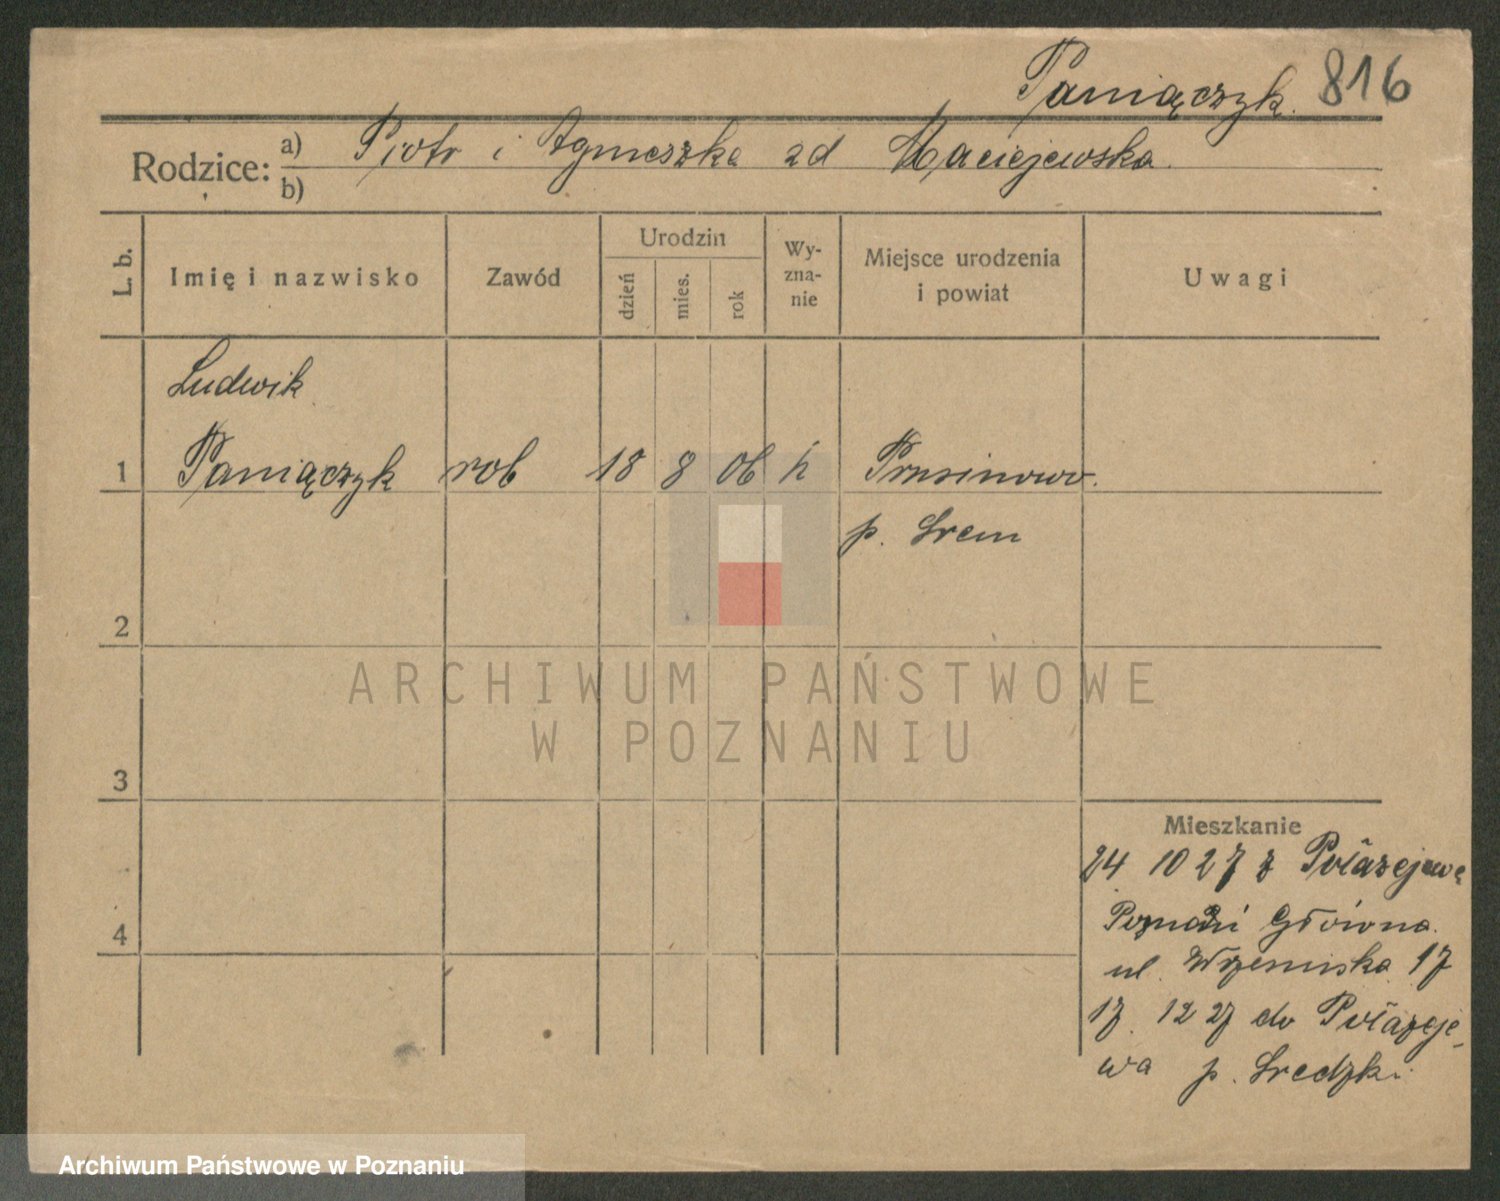 Paniączyk. 816
Rodzice: a) Piotr i Agnieszka zd Maciejewska.
b)
L. b.
Imię i nazwisko
Zawód
Urodzin
dzień
mies.
rok
Wy-
zna-
nie
Miejsce urodzenia
i powiat
Uwagi
Ludwik
1 Paniączyk rob 18 8 06 k Prusinowo.
p. Srem
2
3
4
ARCHIWUM PAŃSTWOWE
W POZNANIU
Mieszkanie
24 10 27 z
Poznań Główna.
ul. Wrzesińska 17
17. 12 27 do
wa p. Sredzki
Archiwum Państwowe w Poznaniu